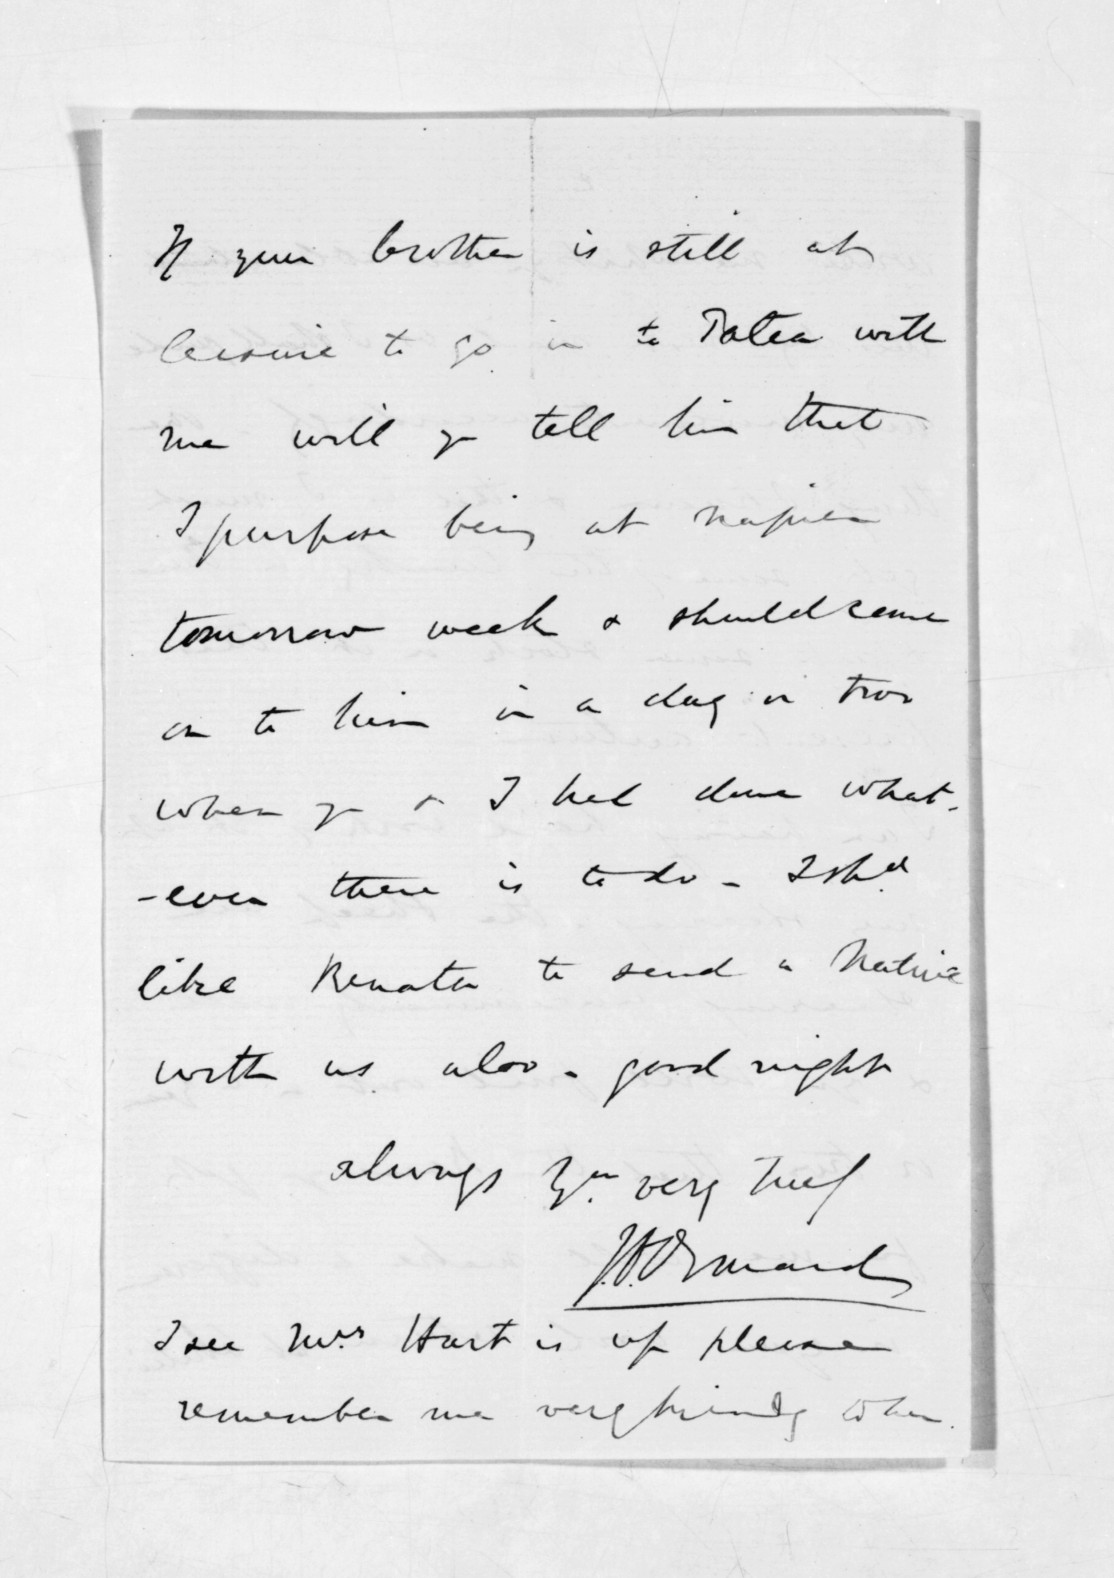 If your brother is still at
leisure to go in to Patea with
me will yr tell him that
I purpose being at Napier
tomorrow week & should come
on to him in a day or two
when yr & I had done what-
-ever there is to do - I shd
like Renata to send a Native
with us also - good night
always Yrs very truly
J.D. Ormond
I see Mrs Hart is up please
remember me very kindly when